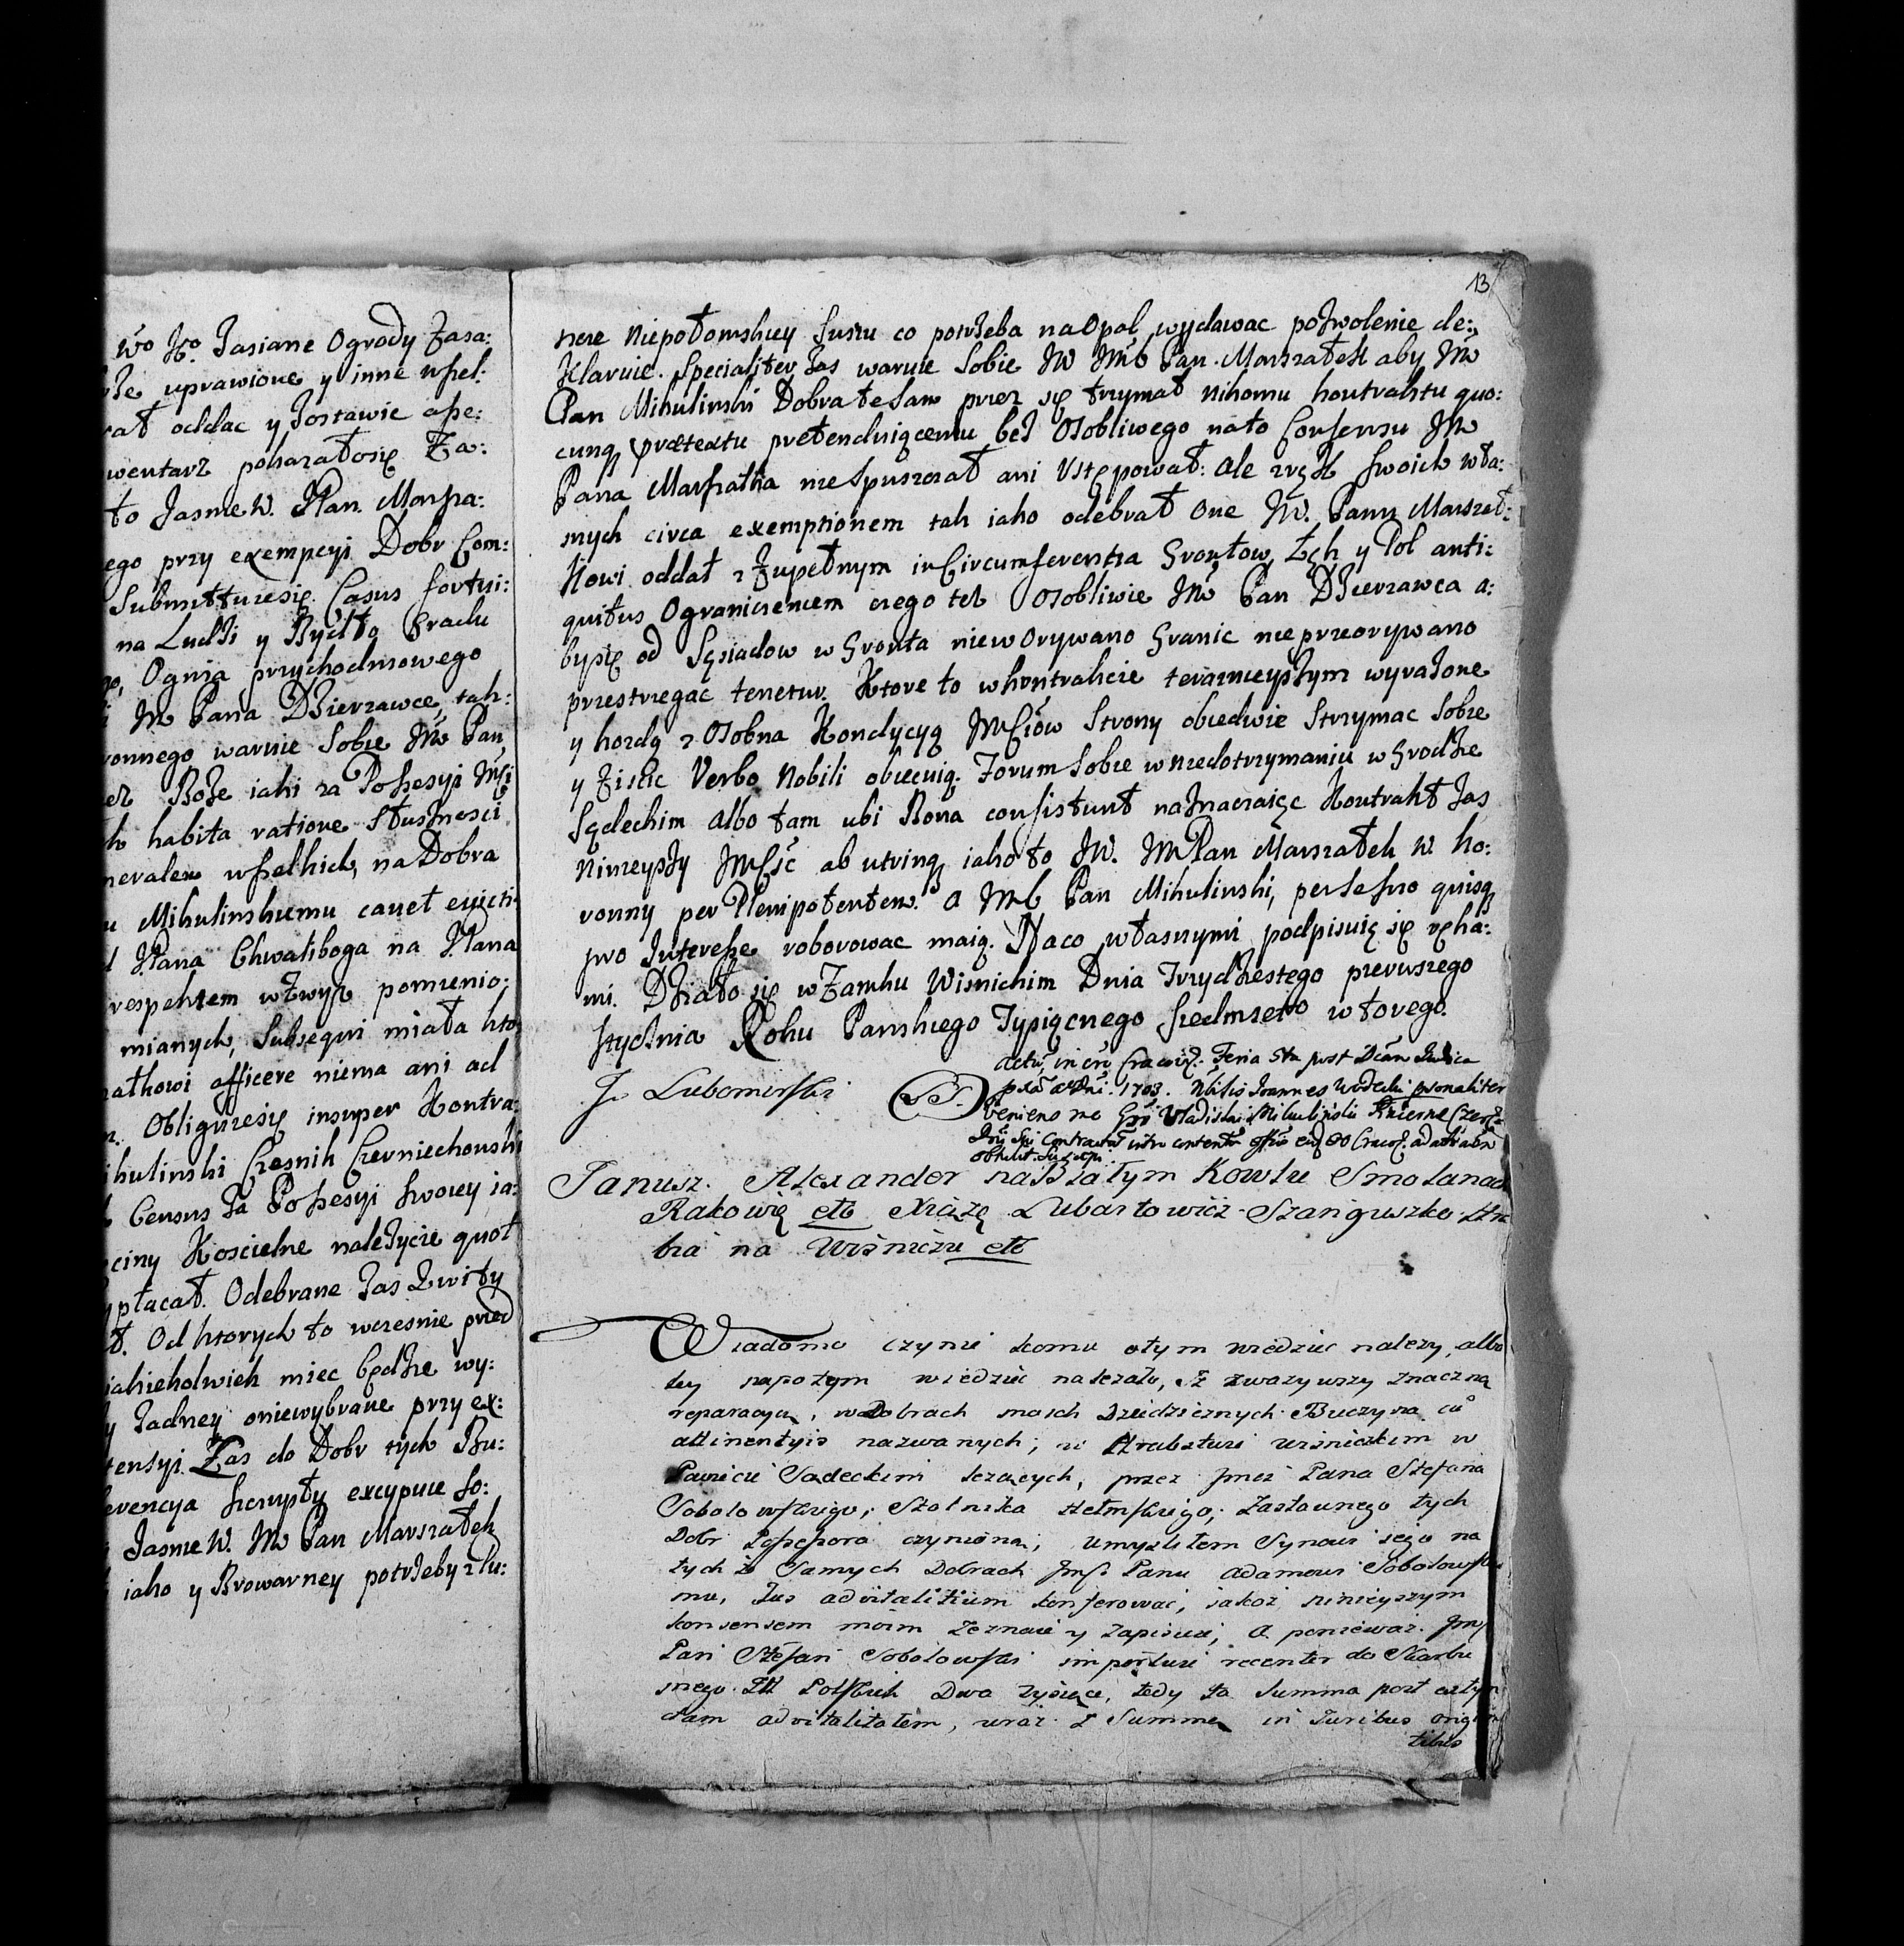 wo Ko. Zasiane Ogrody Zasa:
że uprawione y inne wszel:
rał oddac y Zostawic asse:
wentarz pokazałosię Za:
to Jasnie W. JPan. Marsza:
ego przy exempcyi Dobr Com:
Submittuiesię. Casus fortui:
na Ludzi y Bydło Gradu
Ognia przychodniowego
JM Pana Dzierzawce, tak:
ronnego waruie Sobie JM Pan
Boże iaki za Possesyi JMsci
habita ratione słuszności
neralem wszelkich, na Dobra
Mikulinskiemu cauet euicti:
JPana Chwaliboga na JPana
respektem wZwysz pomienio:
mianych, Subsequi miała kto
ałkowi officere niema ani ad
Obliguiesię insuper Kontra:
ikulinski Czesnik Czerniechowski
Census Za Possesyi swoiey ia:
ciny Koscielne należycie quot
płacał. Odebrane Zas Kwity
Od ktorych to wczesnie przed
iakieholwiek miec będzie wy:
Zadney oniewybrane przy ex:
tensyi. Zas do Dobr tych Bu:
erencya skrypty excypuie so:
Jasnie W. JM Pan Marszałek
iako y Browarney potrzeby z lu:
13
szcze Niepołomskiey Suszu co potrzeba na Opał, wydawac pozwolenie de:
klaruie. Specialiter Zas waruie Sobie JW JMć Pan Marszałek aby JM
Pan Mikulinski Dobra teSame przez się trzymał nikomu kontraktu quo:
cunq prætextu pretenduiącemu bez Osobliwego nato Consensu JM
Pana Marszałka nie Spuszczał ani Ustępował: ale z rąk swoich wła:
snych circa exemptionem tak iako odebrał One JW. Panu Marszał:
kowi oddał z Zupełnym in Circumferentia Grontow, Łąk y Pol anti:
quitus Ograniczeniem czego tez Osobliwie JM Pan Dzierzawca a:
bysię od Sąsiadow w Gronta niew Orywano Granic nie przeorywano
przestrzegac tenetur. Ktore to wkontrakcie teraznieyszym wyrażone
y kozdą z Osobna Kondycyą JMSciow Strony obiedwie Strzymac Sobie
y ziscic Verbo Nobili obiecuią. Forum Sobie w niedotrzymaniu w Grodzie
Sądeckim albo tam ubi Bona consistunt naznaczaiąc Kontrakt Zas
Ninieyszy JMSc ab utrinq iako to JW. JMPan Marszałek W. Ko:
ronny per Plenipotentem. A JMć Pan Mikulinski, per se suo quisq
suo Interesse roborowac maią. Na co własnymi podpisuią się ręka:
mi. Działo się w Zamku Wisnickim Dnia Trzydziestego pierwszego
Stycznia Roku Panskiego Tysiącnego siedmset wtorego.
J. Lubomirski
Feria 5ta post Dcam Judica
1703. Nblis Joannes
veniens Vladislai Mikulinski
Contractum
obtulit
Janusz. Alexander na Białym Kowlu Smolanach
Rakowie etc Xiąże Lubartowicz Szanguszko Hra
bia na Wiśniczu etc
Wiadomo czynie komu otym wiedziec nalezy, albo
tez napotym wiedziec nalezało, Iz zwazywszy znaczną
reparacyą, w Dobrach moich Dziedzicznych Buczyna cũ
attinentiis nazwanych, w Hrabstwi wiśnickim w
Powiecie Sądeckim lezących, przez Jmci Pana Stefana
Sobolowskiego, Stolnika, Zastawnego tych
Dobr Possessora czyniona, umysliłem Synowi iego na
tych ze Samych Dobrach Jmsc Panu Adamowi Sobolowskie
mu, Jus advitalitium konferować, iakoż ninieyszym
konsensem moim zeznaie y zapisuie, a poniewaz Jmsc
Pan Stefan Sobolowski importuie recenter do Skarbu
mego Zł Polskich Dwa tysiące, tedy ta Summa post extin
ctam advitalitatem, wraz z Summą in Juribus origina
libus